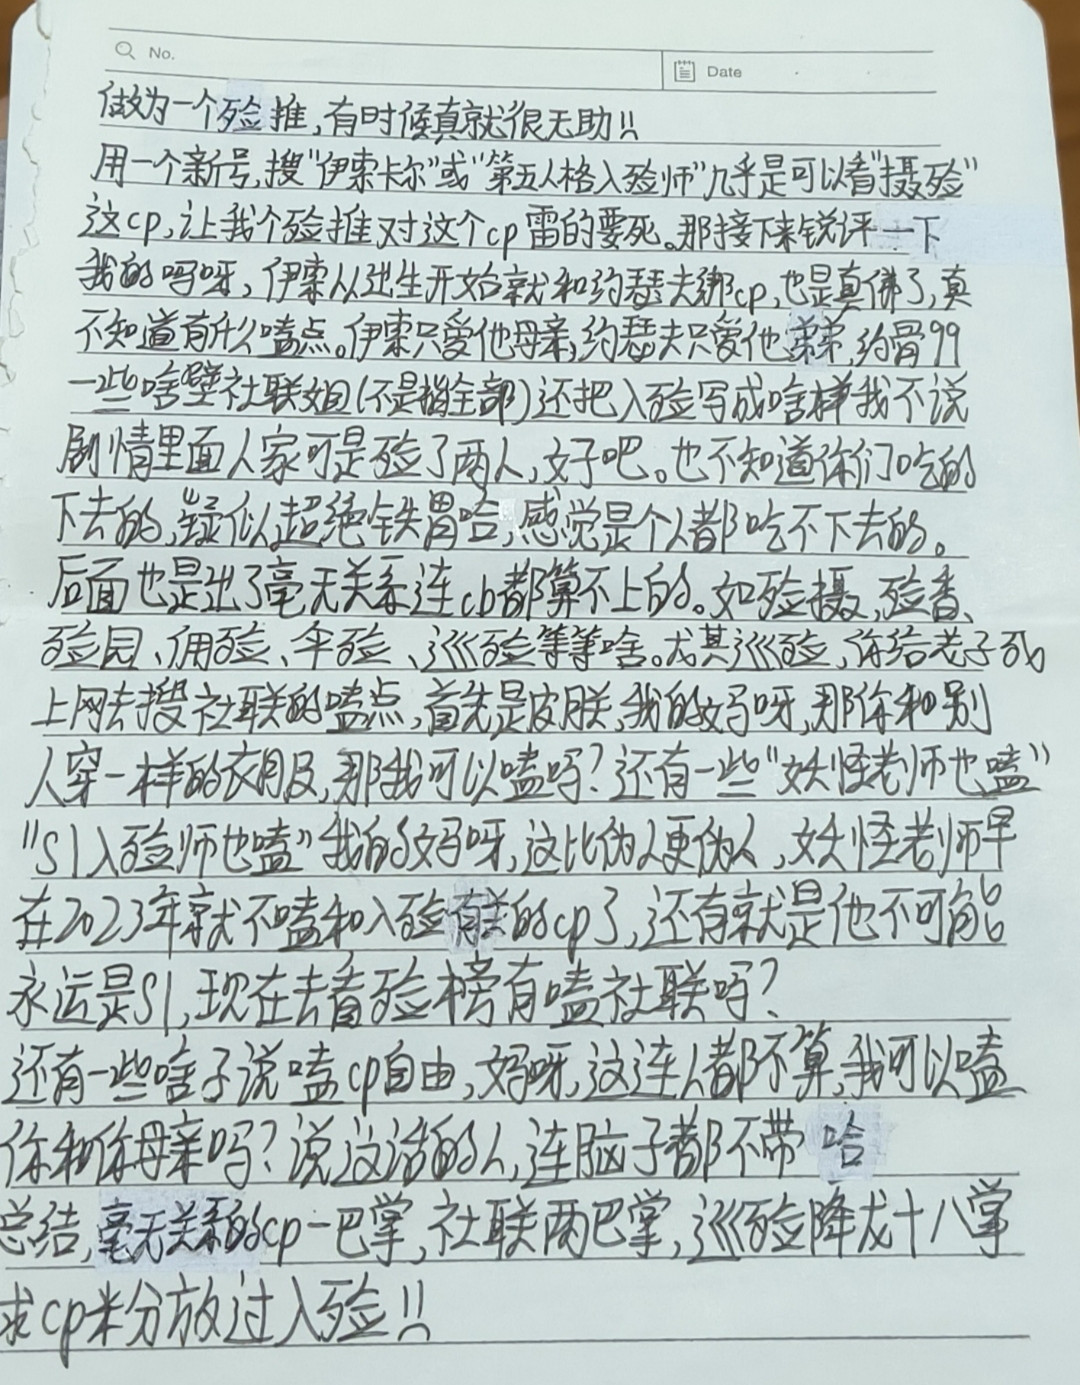 No.
Date
做为一个殓推,有时候真就很无助!!
用一个新号,搜"伊索卡尔"或"第五人格入殓师"几乎是可以看"摄殓"
这cp,让我个殓推对这个cp雷的要死。那接下来锐评一下
我的吗呀,伊索从进生开始就和约瑟夫绑cp,也是真佛了,真
不知道有什么嗑点。伊索只爱他母亲,约瑟夫只爱他弟弟,约骨99
一些啥壁社联姐(不是指全部)还把入殓写成啥样我不说
剧情里面人家可是殓了两人,好吧。也不知道你们吃的
下去的,疑似超绝铁胃哈,感觉是个人都吃不下去的。
后面也是出了毫无关系连cb都算不上的。如殓摄,殓香、
殓园、佣殓、伞殓、巡殓等等啥。尤其巡殓,你给老子死
上网去搜社联的嗑点,首先是皮肤,我的妈呀,那你和别
人穿一样的衣服,那我可以嗑吗?还有一些"妖怪老师也嗑"
"S1入殓师也嗑"我的妈呀,这比伪人更伪人,妖怪老师早
在2023年就不嗑和入殓有关的cp了,还有就是他不可能
永远是S1,现在去看殓榜有嗑社联吗?
还有一些啥子说嗑cp自由,妈呀,这连人都不算,我可以嗑
你和你母亲吗?说这话的人,连脑子都不带哈
总结,毫无关系的cp一巴掌,社联两巴掌,巡殓降龙十八掌
求cp米分放过入殓!!